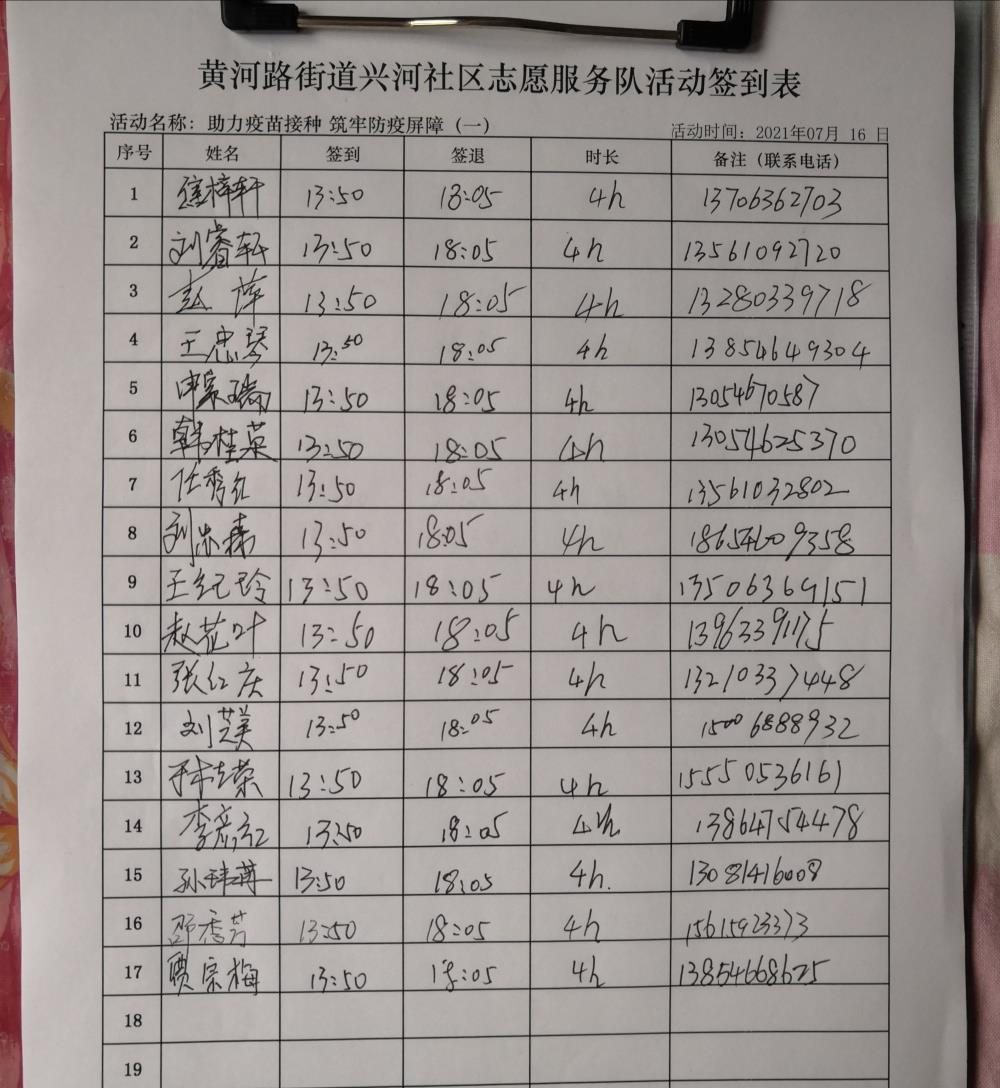 黄河路街道兴河社区志愿服务队活动签到表
活动名称：助力疫苗接种 筑牢防疫屏障（一） 活动时间：2021年07月 16 日
序号 姓名 签到 签退 时长 备注（联系电话）
1 焦梓轩 13:50 18:05 4h 13706362703
2 刘睿轩 13:50 18:05 4h 13561092720
3 13:50 18:05 4h 13280339718
4 王忠琴 13:50 18:05 4h 13854649304
5 13:50 18:05 4h 13054670587
6 韩桂英 13:50 18:05 4h 13054625370
7 任秀红 13:50 18:05 4h 13561032802
8 13:50 18:05 4h 18654609358
9 王纪玲 13:50 18:05 4h 13506369151
10 赵花叶 13:50 18:05 4h 13963391175
11 张红庆 13:50 18:05 4h 13210337448
12 刘芙美 13:50 18:05 4h 15006888932
13 13:50 18:05 4h 15550536161
14 李彦红 13:50 18:05 4h 13864754478
15 13:50 18:05 4h. 13081416008
16 邵秀芳 13:50 18:05 4h 15615923373
17 贾宗梅 13:50 18:05 4h 13854668625
18
19